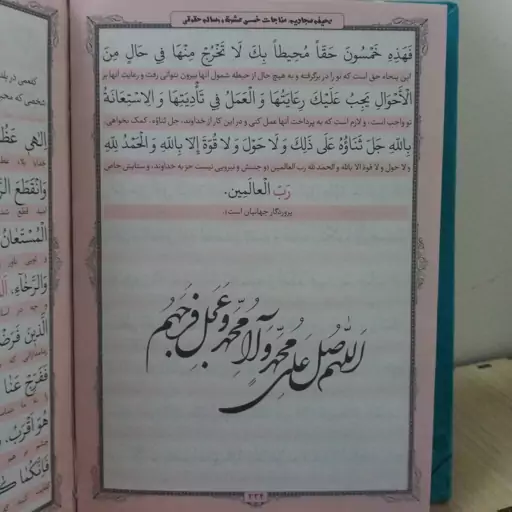 صحیفه سجادیه، مناجات خمس عشرة، رساله حقوق
فَهَذِهِ خَمْسُونَ حَقّاً مُحِیطاً بِكَ لَا تَخْرُجُ مِنْهَا فِي حَالٍ مِنَ
این پنجاه حق است که تو را در برگرفته و به هیچ حال از حیطه شمول آنها بیرون نتوانی رفت و رعایت آنها بر
الْأَحْوَالِ یَجِبُ عَلَیْكَ رِعَایَتُهَا وَ الْعَمَلُ فِي تَأْدِیَتِهَا وَ الِاسْتِعَانَةُ
تو واجب است، و لازم است که به پرداخت آنها عمل کنی و در این کار از خداوند، جل ثناؤه، کمک بخواهی.
بِاللَّهِ جَلَّ ثَنَاؤُهُ عَلَى ذَلِكَ وَ لَا حَوْلَ وَ لَا قُوَّةَ إِلَّا بِاللَّهِ وَ الْحَمْدُ لِلَّهِ
ولا حول و لا قوة الا بالله و الحمد لله رب العالمین (و جنبش و نیرویی نیست جز به خداوند، و ستایش خاص
رَبِّ الْعَالَمِین.
پروردگار جهانیان است).
اللّهم صل علی محمد و آل محمد و عجل فرجهم
۲۲۴
إِلَهِي عَظُ
وَانْقَطَعَ
الْمُسْتَعَانُ
وَالرَّخَاءِ،
الَّذِینَ فَرَضْ
فَفَرِّجْ عَنَّا
هُوَ أَقْرَبُ،
فَإِنَّكُمَا